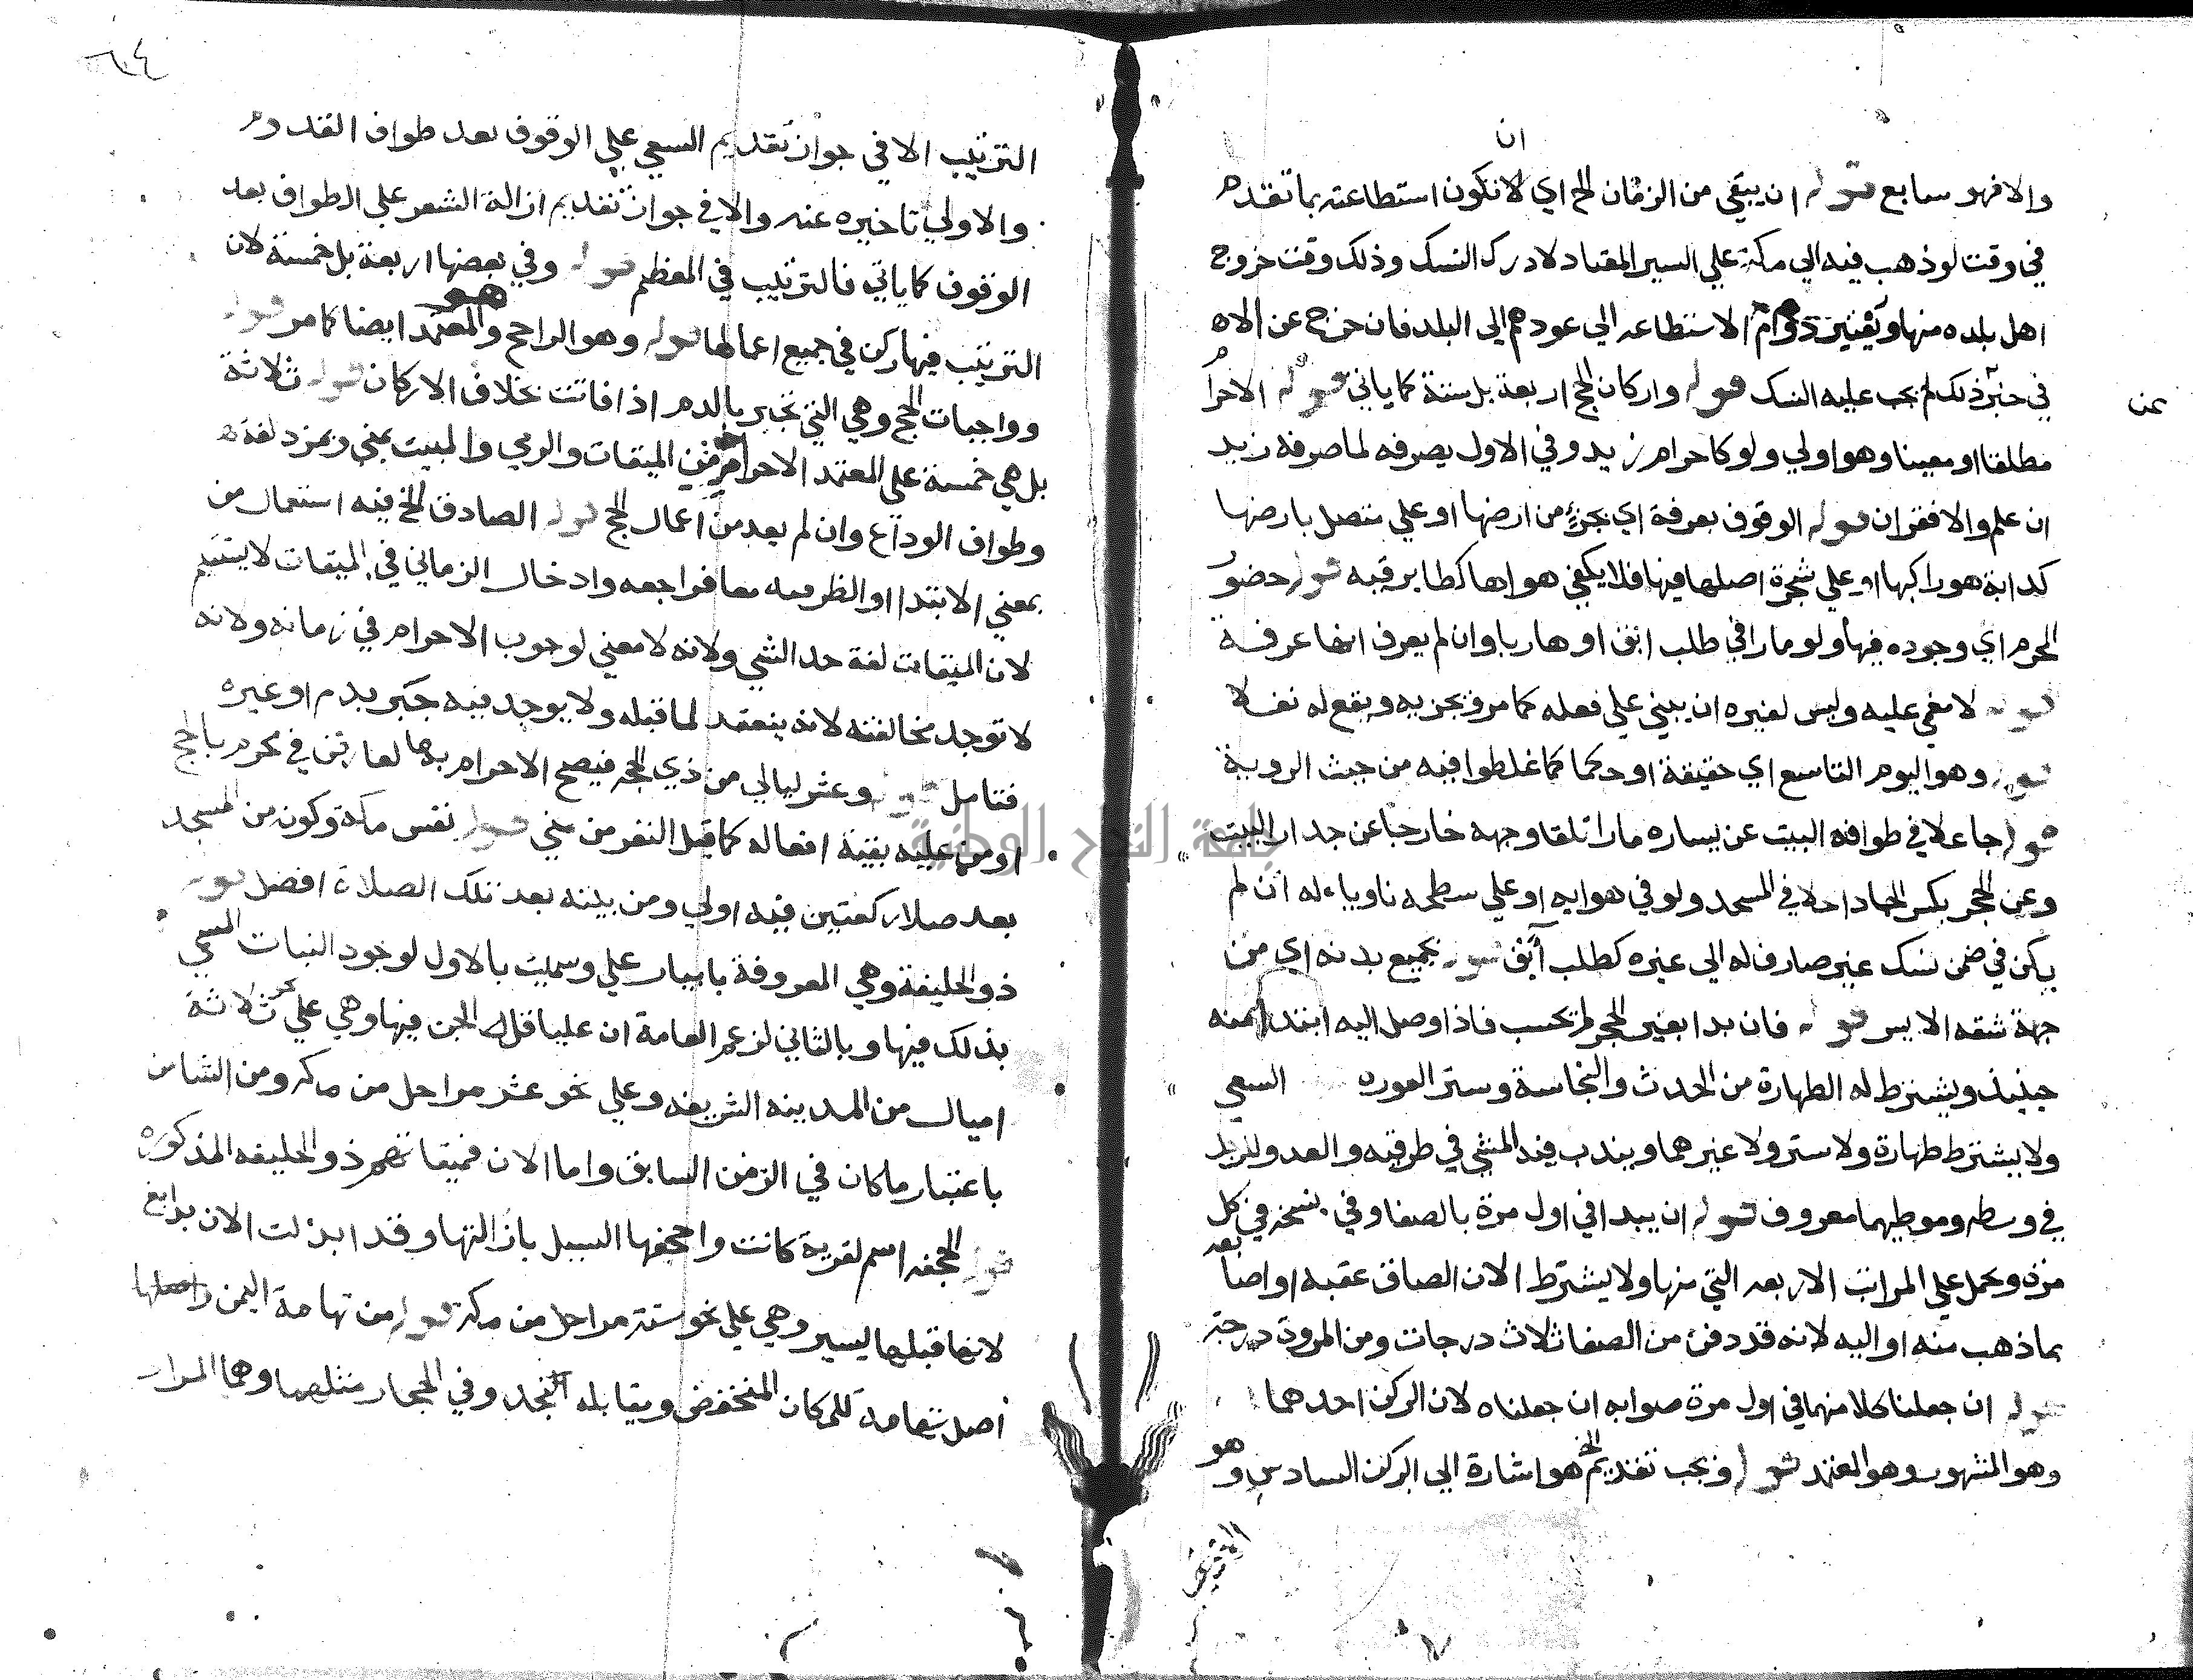 ان
والا فهو سابع قوله ان يبقي من الزمان الخ اي لان تكون استطاعته بما تقدم
في وقت لو ذهب فيه الي مكة علي السير المعتاد لادرك النسك وذلك وقت خروج
اهل بلده منها ويعتبر دوام الاستطاعه الي عودهم الي البلد فان خرج عن الاه
في جزء ذلك لم يجب عليه النسك قوله واركان الحج اربعة بل ستة كما ياتي قوله الاحرام
عن
مطلقا او معينا وهو اولي ولو كاحرام زيد وفي الاول يصرفه لما صرفه زيد
ان علم والا فقران قوله الوقوف بعرفة اي بجزء من ارضها او علي متصل بارضها
كدابة هو راكبها او علي شجرة اصلها فيها فلا يكفي هواها كطاير فيه قوله حضور
المحرم اي وجوده فيها ولو مارا في طلب ابق او هاربا وان لم يعرف انها عرفة
قوله لا مغمي عليه وليس لغيره ان يبني علي فعله كما مر ويجزيه ويقع له نفلا
قوله وهو اليوم التاسع اي حقيقة او حكما كما غلطوا فيه من حيث الروية
قوله جاعلا في طوافه البيت عن يساره مارا تلقا وجهه خارجا عن جدار البيت
وعن الحجر بكسر الحاء داخلا في المسجد ولو في هوايه او علي سطحه ناويا له ان لم
يكن في ضمن نسك غير صارف له الي غيره كطلب آبق قوله بجميع بدنه اي من
جهة شقه الايسر قوله فان بدا بغير الحجر لم يحسب فاذا وصل اليه ابتدا منه
حينيذ ويشترط له الطهارة من الحدث والنجاسة وستر العوره السعي
ولا يشترط طهارة ولا ستر ولا غيرهما ويندب فيه المشي في طرفيه والعدو للرجل
في وسطه وموطيهما معروف قوله ان يبدا في اول مرة بالصفا وفي نسخه في كل
مره ويحمل علي المرات الاربعه التي منها ولا يشترط الان الصاق عقبه او اصابعه
بما ذهب منه او اليه لانه قد دفن من الصفا ثلاث درجات ومن المروة درجة
قوله ان جعلنا كلا منهما في اول مرة صوابه ان جعلناه لان الركن احدهما
وهو المشهور وهو المعتمد قوله ويجب تقديم الخ هو اشارة الي الركن السادس وهو
الترتيب
الترتيب الا في جواز تقديم السعي علي الوقوف بعد طواف القدوم
والاولي تاخيره عنه والا في جواز تقديم ازالة الشعر علي الطواف بعد
الوقوف كما ياتي فالترتيب في المعظم قوله وفي بعضها اربعة بل خمسة لان
الترتيب فيها ركن في جميع اعمالها قوله وهو الراجح هو والمعتمد ايضا كما مر قوله
وواجبات الحج وهي التي تجبر بالدم اذا فاتت بخلاف الاركان قوله ثلاثة
بل هي خمسة علي المعتمد الاحرام من الميقات والرمي والمبيت بمني وبمزدلفة
وطواف الوداع وان لم يعد من اعمال الحج قوله الصادق الخ فيه استعمال من
بمعني الابتدا او الظرفيه معا فراجعه وادخال الزماني في الميقات لا يستقيم
لان الميقات لغة حد الشي ولانه لا معني لوجوب الاحرام في زمانه ولانه
لا توجد مخالفته لانه ينعقد لما قبله ولا يوجد فيه جبر بدم او غيره
فتامل قوله وعشر ليالي من ذي الحجه فيصح الاحرام بها لمن يحرم بالحج
او من عليه بقية افعاله كما قبل النفر من مني قوله نفس مكة وكونه من المسجد
بعد صلاة ركعتين فيه اولي ومن بيته بعد تلك الصلاة افضل قوله
ذو الحليفة وهي المعروفة بابيار علي وسميت بالاول لوجود النبات المسمي
بذلك فيها وبالثاني لزعم العامة ان عليا قاتل الجن فيها وهي علي نحو ثلاثة
اميال من المدينه الشريفه وعلي نحو عشر مراحل من مكه ومن الشام
باعتبار ما كان في الزمن السابق واما الان فميقاتهم ذو الحليفه المذكوره
قوله الجحفه اسم لقرية كانت واجحفها السيل بازالتها وقد ابدلت الان برابغ
لانها قبلها بيسير وهي علي نحو ستة مراحل من مكة قوله من تهامة اليمن واصلها
اصل تهامة للمكان المنخفض ويقابله النجد وفي الحجاز مثلهما وهما المراد
جامعة النجاح الوطنية